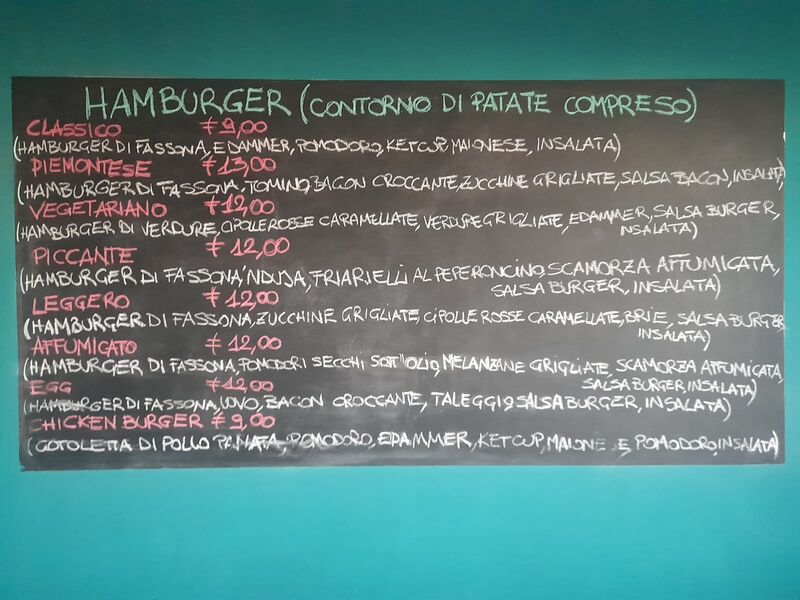 HAMBURGER (CONTORNO DI PATATE COMPRESO)
CLASSICO € 9,00
(HAMBURGER DI FASSONA, EDAMMER, POMODORO, KETCUP, MAIONESE, INSALATA)
PIEMONTESE € 13,00
(HAMBURGER DI FASSONA, TOMINO, BACON CROCCANTE, ZUCCHINE GRIGLIATE, SALSA BACON, INSALATA)
VEGETARIANO € 12,00
(HAMBURGER DI VERDURE, CIPOLLE ROSSE CARAMELLATE, VERDURE GRIGLIATE, EDAMMER, SALSA BURGER,
INSALATA)
PICCANTE € 12,00
(HAMBURGER DI FASSONA, 'NDUJA, FRIARIELLI AL PEPERONCINO, SCAMORZA AFFUMICATA,
SALSA BURGER, INSALATA)
LEGGERO € 12,00
(HAMBURGER DI FASSONA, ZUCCHINE GRIGLIATE, CIPOLLE ROSSE CARAMELLATE, BRIE, SALSA BURGER
INSALATA)
AFFUMICATO € 12,00
(HAMBURGER DI FASSONA, POMODORI SECCHI SOTT'OLIO, MELANZANE GRIGLIATE, SCAMORZA AFFUMICATA,
SALSA BURGER INSALATA)
EGG € 12,00
(HAMBURGER DI FASSONA, UOVO, BACON CROCCANTE, TALEGGIO, SALSA BURGER, INSALATA)
CHICKEN BURGER € 9,00
(COTOLETTA DI POLLO PANATA, POMODORO, EDAMMER, KETCUP, MAIONE E POMODORO, INSALATA)